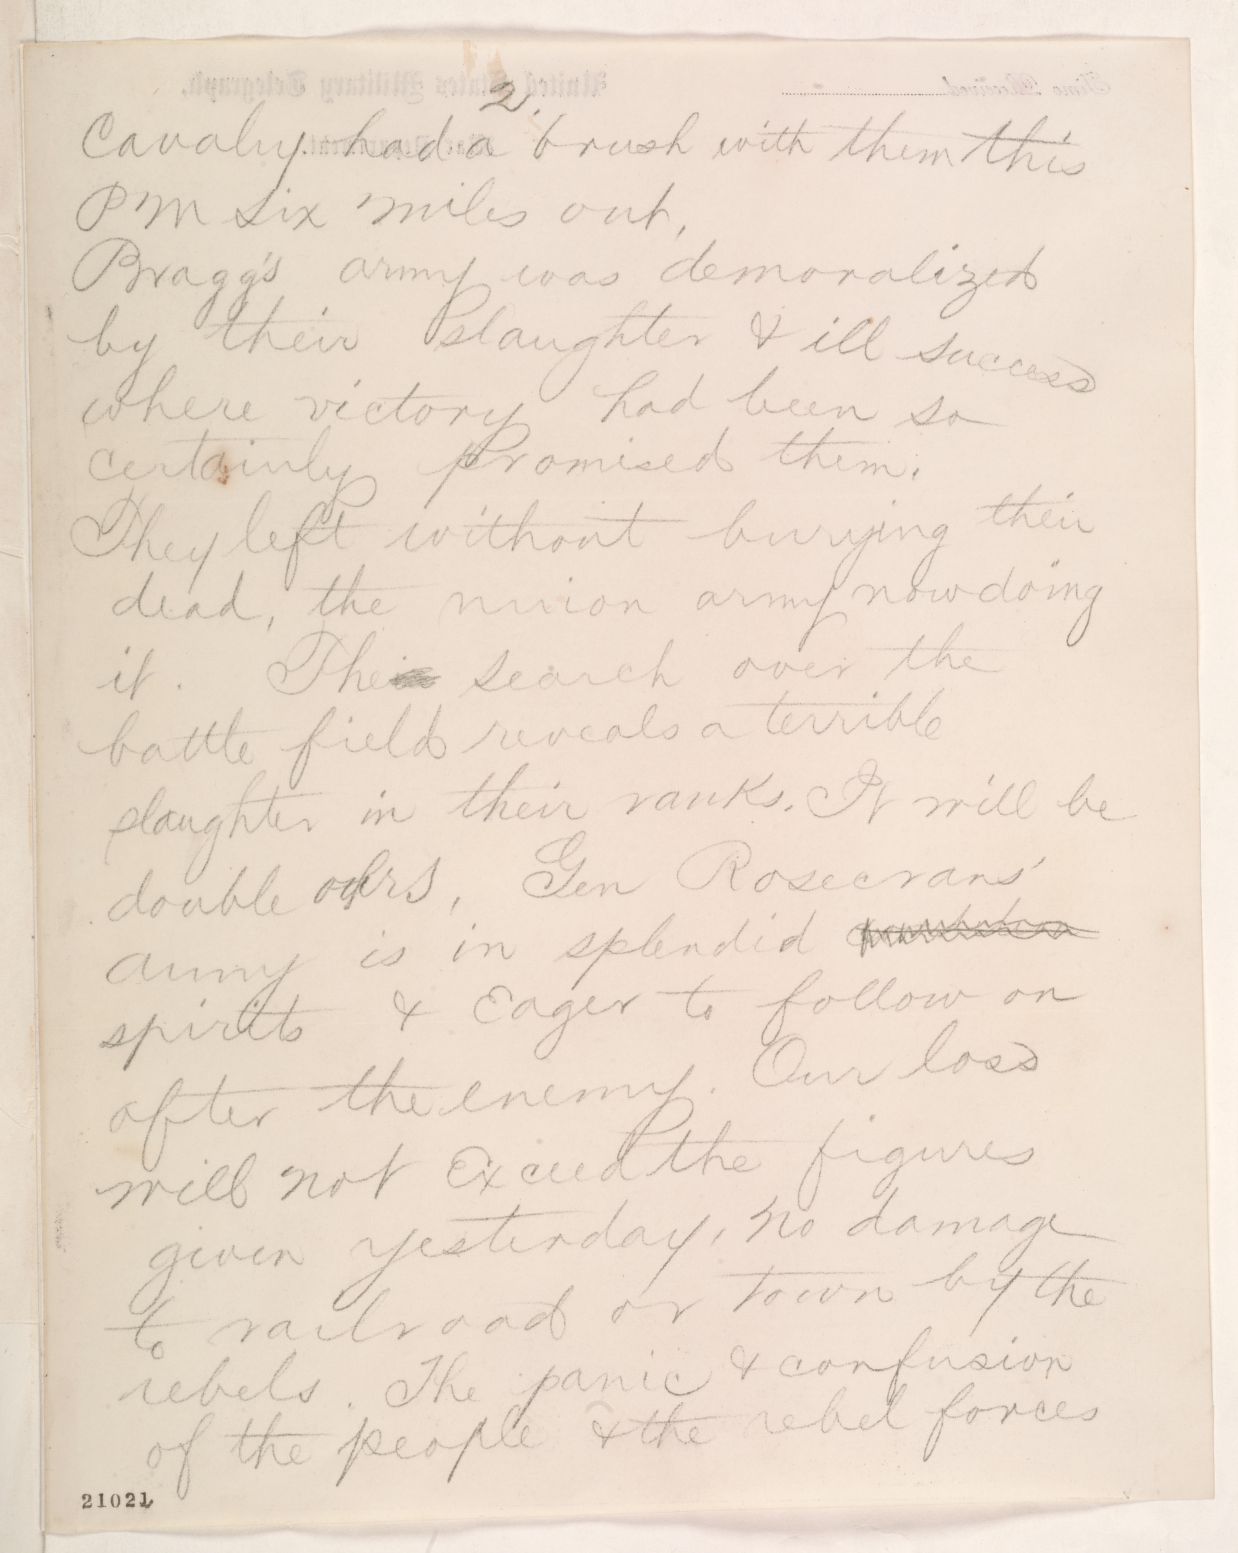 2.
Cavalry had a brush with them this
PM six miles out,
Bragg's army was demoralized
by their slaughter & ill success
where victory had been so
certainly promised them.
They left without burying their
dead, the union army now doing
it. The search over the
battle field reveals a terrible
slaughter in their ranks. It will be
double ours, Gen Rosecrans'
army is in splendid
spirits & Eager to follow on
after the enemy. Our loss
will not Exceed the figures
given yesterday, no damage
to railroad or town by the
rebels. The panic & confusion
of the people & the rebel forces
21021